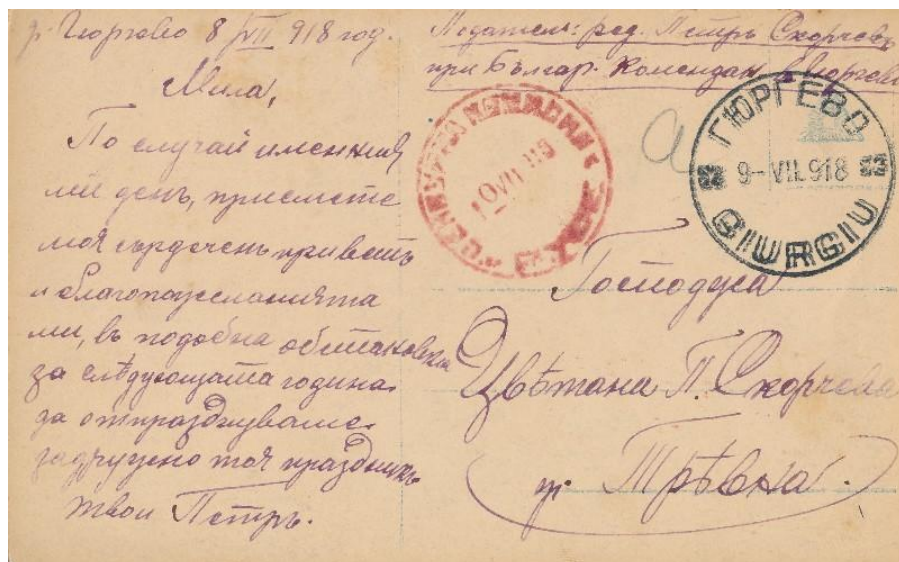 гр. Гюргево 8/VII 918 год.
Мила,
По случай именния
ми день, приемете
моя сърдеченъ приветъ
и благопожеланията
ми, въ подобна обстановка
за слѣдующата година
да отпразднуваме
задружно тоя праздникъ
твои Петръ.
Подателъ: ред. Петръ Скорчевъ
при Българ. Комендан. в Гюргево
ГЮРГЕВО
9-VII.918
GIURGIU
10 VII
Госпожа
Цвѣтана П. Скорчева
гр. Трѣвна.